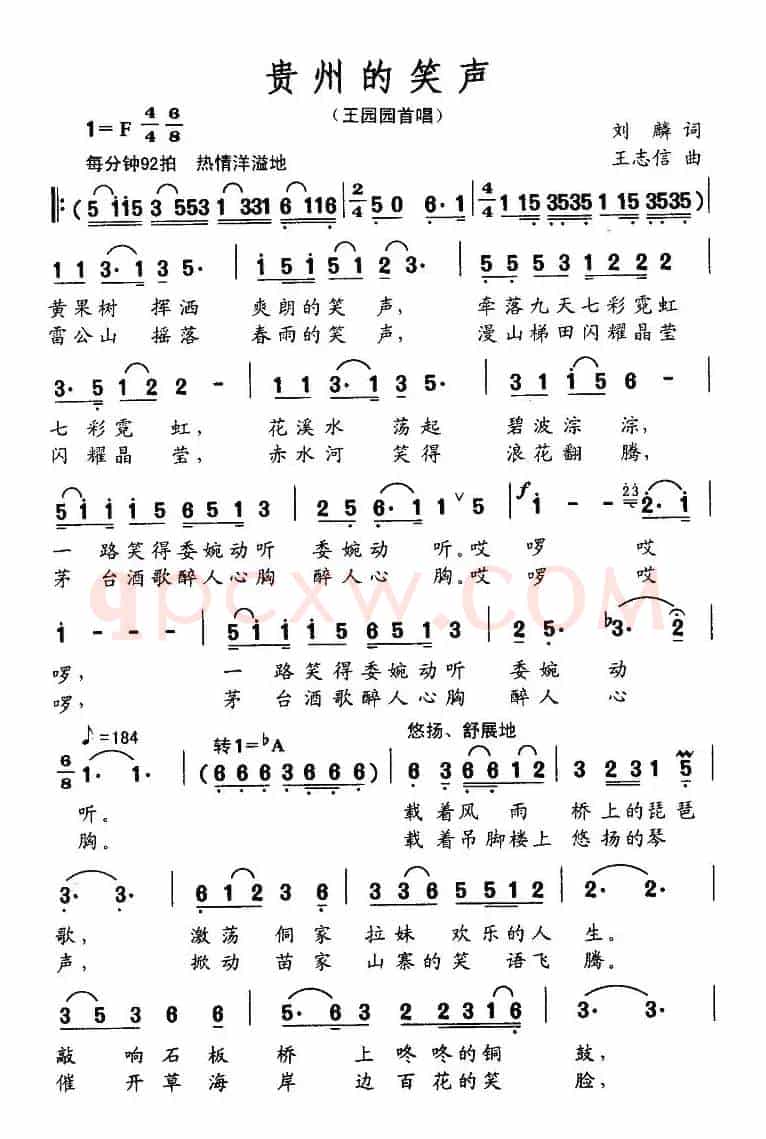 贵州的笑声
（王园园首唱）
1=F 4/4 6/8
刘 麟 词
每分钟92拍 热情洋溢地
王志信 曲
‖: (5 1115 3 5553 1 3331 6 1116 | 2/4 5 0 6·1 | 4/4 1 15 3535 1 15 3535)
1 1 3·1 3 5· | 1 5 1 5 1 2 3· | 5 5 5 3 1 2 2 2
黄果树 挥洒 爽朗的笑 声, 牵落九天七彩霓虹
雷公山 摇落 春雨的笑 声, 漫山梯田闪耀晶莹
3·5 1 2 2 - | 1 1 3·1 3 5· | 3 1 1 5 6 -
七彩霓 虹, 花溪水 荡起 碧波淙 淙,
闪耀晶 莹, 赤水河 笑得 浪花翻 腾,
5 1 1 1 5 1 6 5 1 3 | 2 5 6·1 1 ∨ 5 | f 1 - - 23 2·1
一 路笑得委婉动听 委婉动 听。哎 啰 哎
茅 台酒歌醉人心胸 醉人心 胸。哎 啰 哎
qpcxw.COM
1 - - - | 5 1 1 1 5 1 6 5 5 1 3 | 2 5· ♭3· 2
啰, 一 路笑得委婉动听 委婉 动
啰, 茅 台酒歌醉人心胸 醉人 心
♪=184 转1=♭A 悠扬、舒展地
6/8 1· 1· | (6 6 6 3 6 6 6 6 6) | 6 3 6 6 1 2 | 3 2 3 1 5
听。 载着风 雨 桥上的琵琶
胸。 载着吊脚楼上 悠扬的琴
3· 3· | 6 1 2 3 3 | 3 3 6 5 5 1 2 | 2· 2·
歌, 激荡 侗家 拉妹 欢乐的人 生。
声, 掀动 苗家 山寨的笑 语飞 腾。
3 5 3 6 6 | 5·6 3 2 | 2 2 3 1 6 | 3· 3·
敲 响石板 桥 上 咚咚的铜 鼓,
催 开草海 岸 边 百花的笑 脸,